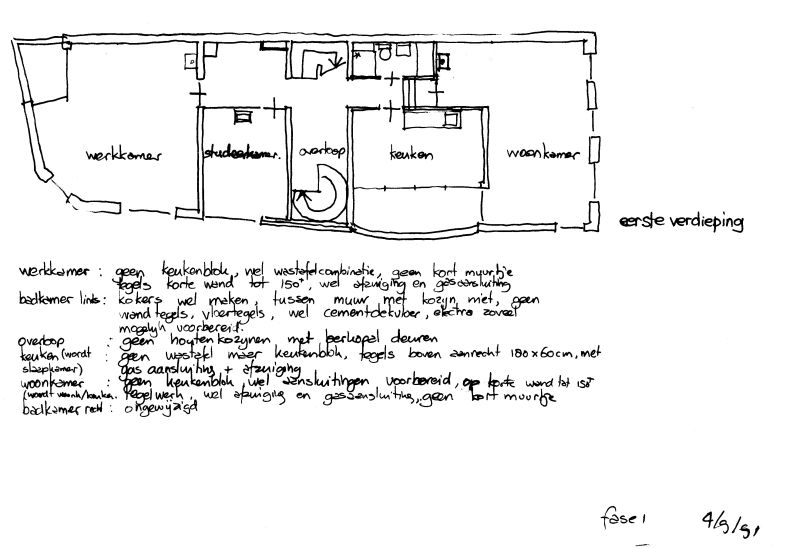 werkkamer
studeerkamer.
overloop
keuken
woonkamer
eerste verdieping
werkkamer : geen keukenblok, wel wastafelcombinatie, geen kort muurtje
tegels korte wand tot 150+, wel afzuiging en gasaansluiting
badkamer links: kokers wel maken, tussen muur met kozijn, niet, geen
wandtegels, vloertegels, wel cementdekvloer, electra zoveel
mogelijk voorbereid.
overloop : geen houten kozijnen met deuren
keuken (wordt : geen wastafel maar keukenblok, tegels boven aanrecht 180 x 60 cm, met
slaapkamer) gas aansluiting + afzuiging
woonkamer : geen keukenblok wel aansluitingen voorbereid, op korte wand tot 150+
(wordt woonk/keuken. tegelwerk, wel afzuiging en gasaansluiting, geen kort muurtje
badkamer recht : ongewijzigd
fase 1 4/9/91